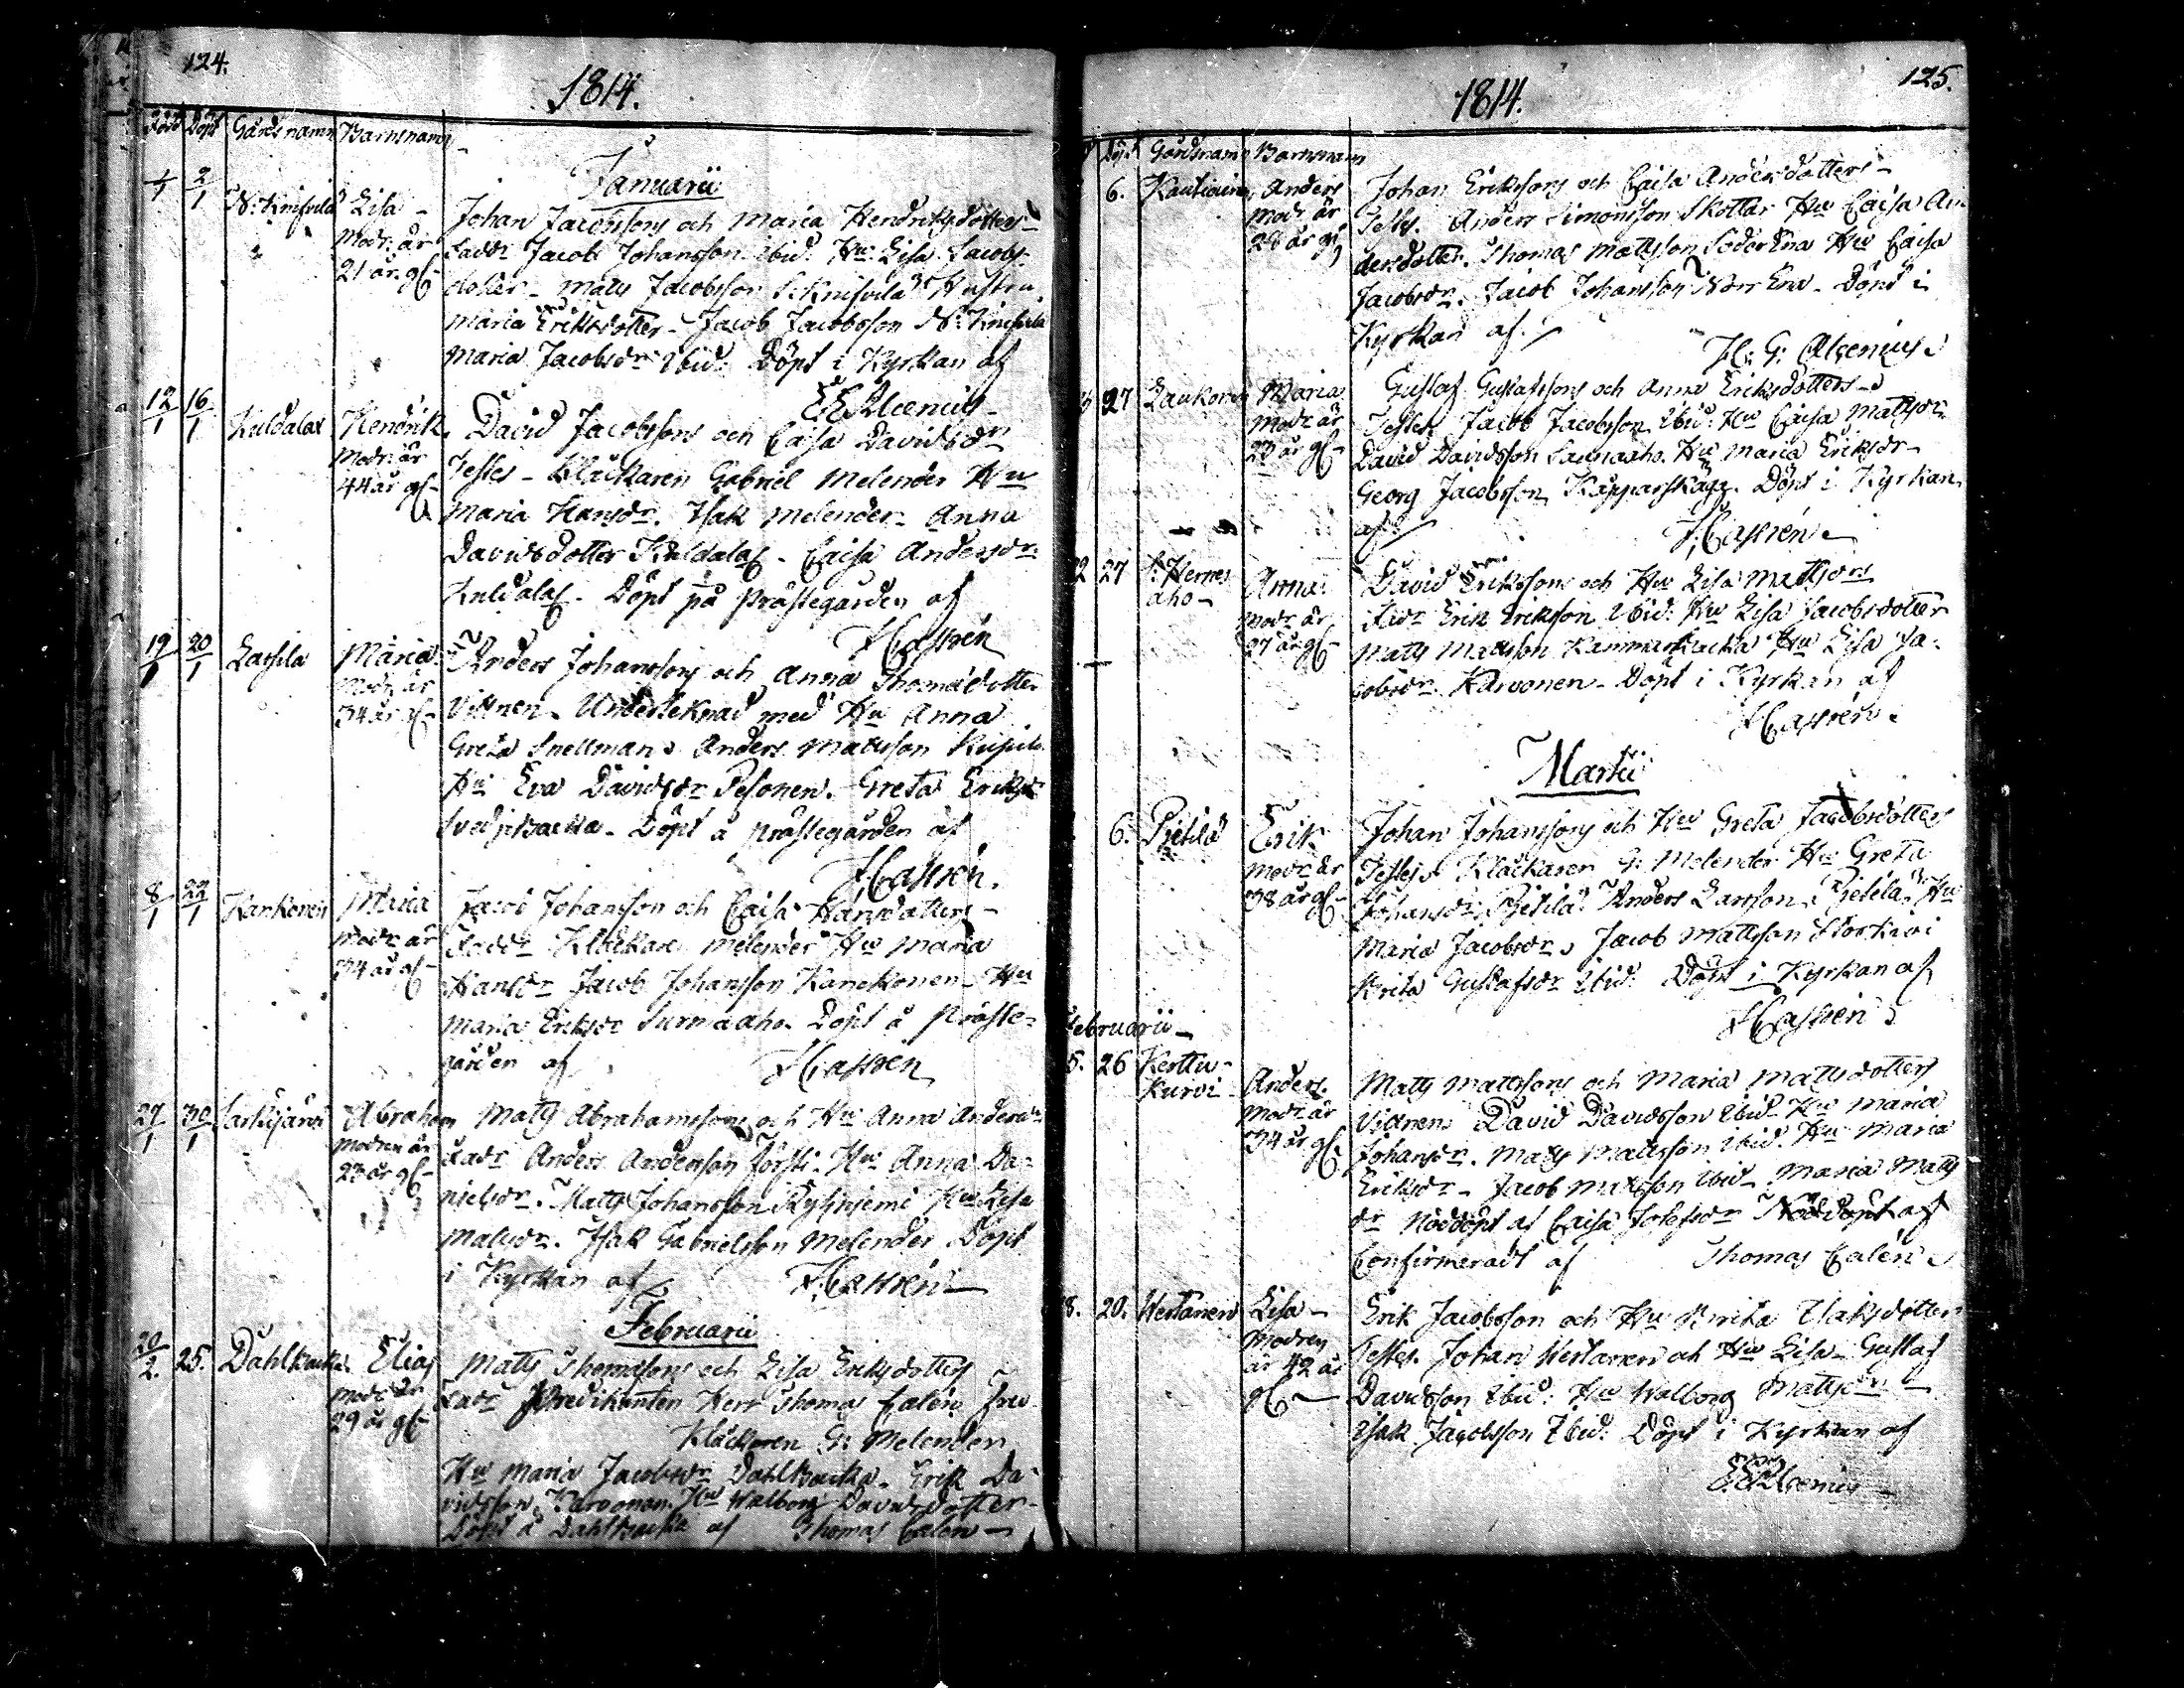 124.
1814.
Född Döpt Gårds namn Barnsnamn
Januarii
1/1 2/1 N: Knifsilä Lisa
Modr: är
21 år gl
Johan Jacobssons och Maria Hendriksdotters
Faddr Jacob Johansson Ibid: Hu: Lisa Jacobs
dotter - Matts Jacobsson S: Knifsilä Hustru
Maria Eriksdotter - Jacob Jacobsson N: Knifsilä
Maria Jacobsdr Ibid: Döpt i Kyrkan af
E E Alcenius
12/1 16/1 Kuldalax Hendrik
Modr: är
44 år gl
David Jacobssons och Caisa Davidsdr
Testes - Klåckaren Gabriel Melender Hu
Maria Hansdr. Isak Melender - Anna
Davidsdotter Kuldalax - Caisa Andersdr
Kuldalax - Döpt på Prästegården af
H Cassrén
19/1 20/1 Lassila Maria
Modr är
34 år gl
Anders Johanssons och Anna Thomædotter
Vittnen - Underteknad med Hu Anna
Greta Snellman. Anders Mattsson
Hu Eva Davidsdr Pesonen. Greta Eriksdr
Svedjebacka - Döpt å prästegården af
H Cassrén.
8/1 22/1 Karkonen Maria
Modr är
34 år gl
Jacob Johansson och Caisa Hansdotters -
Faddr Klåckare Melender Hu Maria
Hansdr Jacob Johansson Kanckonen - Hu
Maria Eriksdr Surmaaho. Döpt å Präste-
gården af H Cassrén
27/1 30/1 Särkijärvi Abraham
Modren är
23 år gl
Matts Abrahamssons och Hu Anna Andersdr
Faddr Anders Andersson Jörsti. Hu Anna Da-
nielsdr. Matts Johansson Kyhniemi Hu Lisa
Matsdr. Isak Gabrielsson Melender Döpt
i Kyrkan af H Cassrén
Februarii
20/2. 25. Dahlbacka Elias
Modr är
29 år gl
Matts Thomassons och Lisa Eriksdotters
Faddr Predikanten Herr Thomas Calén Fru
Klåckaren G: Melender
Hu Maria Jacobsdr Dahlbacka. Erik Da-
vidsson Karvonen. Hu Walborg Davidsdotter -
Döpt å Dahlbacka af Thomas Calén
125.
1814.
Döpt Gårdsnamn Barnsnamn
6. Kautiainen Anders
Modr är
28 år gl
Johan Erikssons och Caisa Andersdotters -
Testes. Anders Simonsson Skottar Hu Caisa An
dersdotter. Thomas Mattsson Söder Ena Hu Caisa
Jacobsdr. Jacob Johansson Norr Ena - Döpt i
Kyrkan af.
H: G: Alcenius
27 Laukonen Maria
Modr är
23 år gl
Gustaf Gustafssons och Anna Eriksdotters -
Testes Jacob Jacobsson Ibid: Hu Caisa Mattsdr
David Davidsson Saunaaho. Hu Maria Eriksdr -
Georg Jacobsson Kapparskägg. Döpt i Kyrkan
af
H Cassrén
22 27 Hernes
aho - Anna
Modr är
27 år gl
David Erikssons och Hu Lisa Mattsdrs
Fadr Erik Eriksson Ibid: Hu Lisa Jacobsdotter
Matts Mattsson Kammarbacka Hu Lisa Ja-
cobsdr Karvonen - Döpt i Kyrkan af
H Cassrén.
Martii
6. Pietilä Erik
Modr är
38 år gl
Johan Johanssons och Hu Greta Jacobsdotters
Testes Klåckaren G: Melender Hu Greta
Johansdr Pietilä. Anders Larsson Pietilä Hu
Maria Jacobsdr. Jacob Mattsson
Brita Gustafsdr Ibid: Döpt i Kyrkan af
H Cassrén
Februarii -
5. 26 Kerttu-
kurvi - Anders
Modr är
34 år gl
Matts Mattssons och Maria Mattsdotters
Vittnen David Davidsson Ibid - Hu Maria
Johansdr. Matts Mattsson Ibid. Hu Maria
Eriksdr - Jacob Mattsson Ibid - Maria Matts
dr Nöddöpt af Caisa Josefsdr Nöddöpt af
Confirmeradt af Thomas Calén
8. 20. Wertanen Lisa -
Modren
är 42 år
gl
Erik Jacobsson och Hu Brita Isaksdotter
Testes. Johan Wertanen och Hu Lisa - Gustaf
Davidsson Ibid: Hu Walborg Mattsdr
Isak Jacobsson Ibid: Döpt i Kyrkan af
E E Alcenius